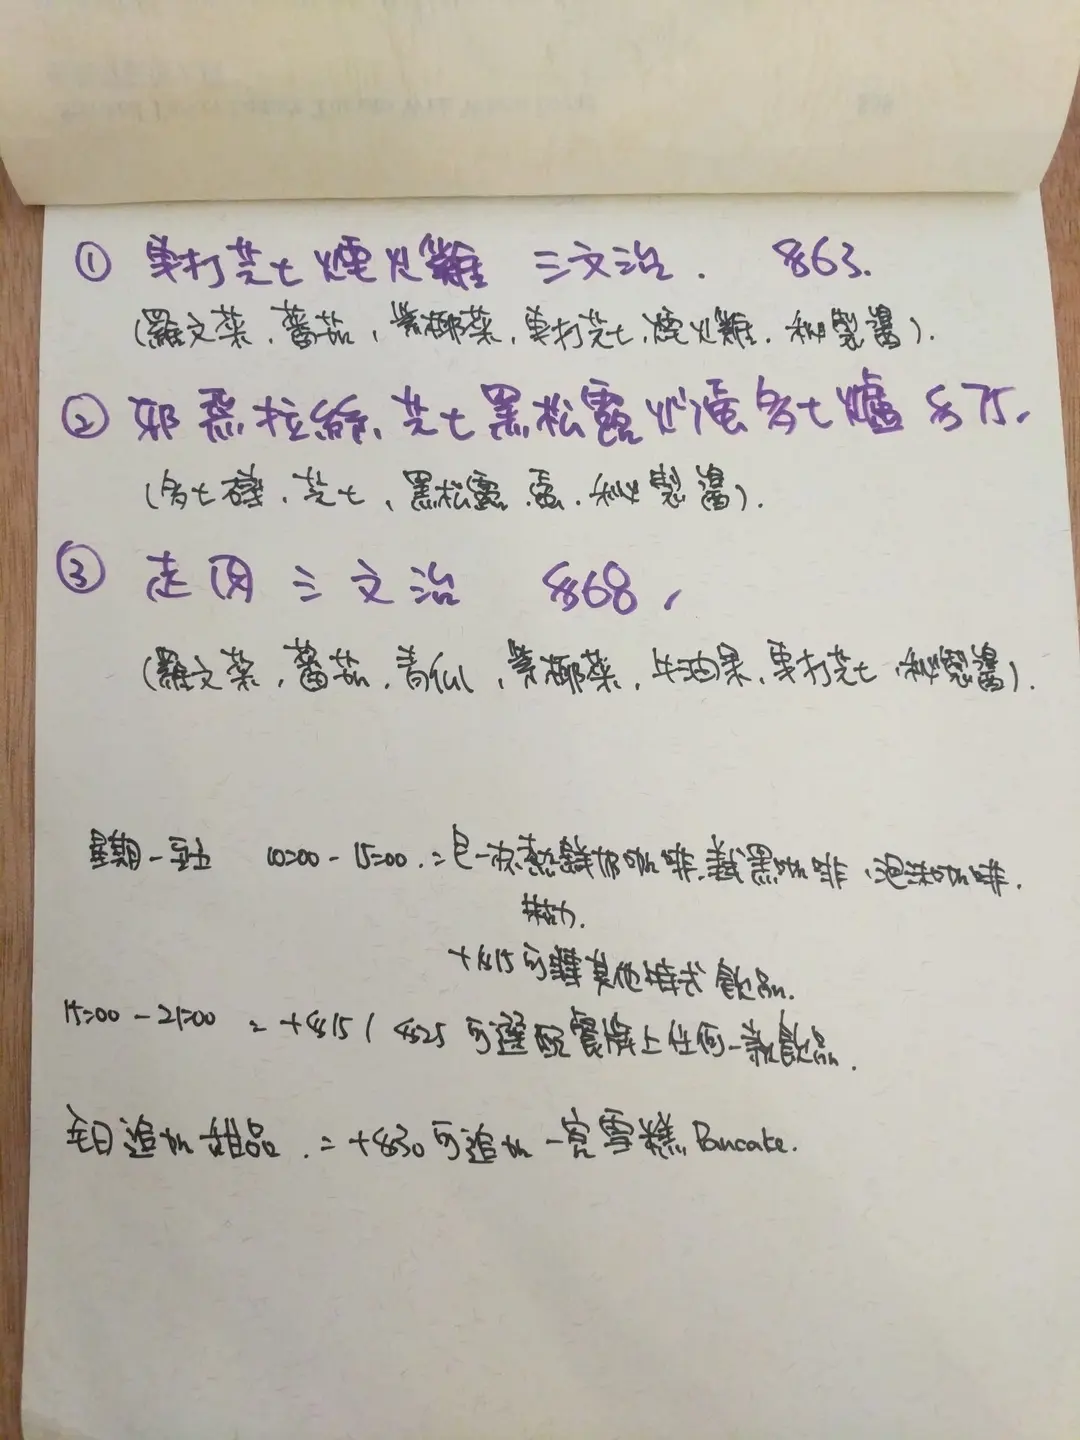 ① 車打芝士煙火雞 三文治. $63.
(羅文菜, 蕃茄, 紫椰菜, 車打芝士, 煙火雞, 秘製醬).
② 芝士黑松露炒蛋多士 $75.
(多士, 芝士, 黑松露, 蛋, 秘製醬).
③ 走肉三文治 $68.
(羅文菜, 蕃茄, 青瓜, 紫椰菜, 牛油果, 車打芝士, 秘製醬).
星期一至五 10:00 - 15:00 = 包一杯熱鮮奶咖啡, 黑咖啡, 泡沫咖啡,
+$15可 其他特式飲品.
15:00 - 21:00 = +$15 / $25 可選配餐牌上任何一款飲品.
全日追加甜品 = +$30可追加一客雪糕 Pancake.